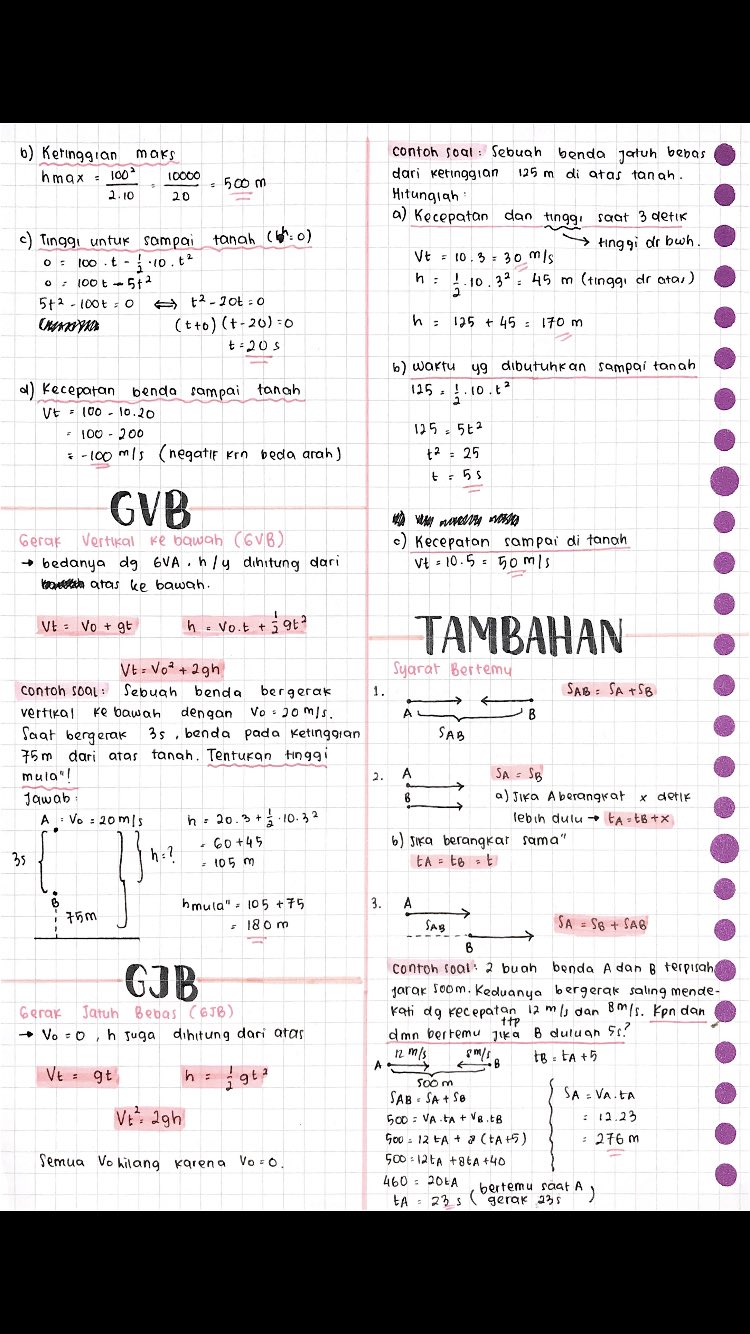 b) Ketinggian maks
hmax = 100² / 2.10 = 10000 / 20 = 500 m
c) Tinggi untuk sampai tanah (h=0)
0 = 100 . t - 1/2 . 10 . t²
0 = 100t - 5t²
5t² - 100t = 0 ⟺ t² - 20t = 0
(t+0) (t-20) = 0
t = 20 s
d) Kecepatan benda sampai tanah
Vt = 100 - 10.20
= 100 - 200
= -100 m/s (negatif krn beda arah)
GVB
Gerak Vertikal ke bawah (GVB)
→ bedanya dg GVA, h/y dihitung dari
atas ke bawah.
Vt = Vo + gt
h = Vo.t + 1/2 gt²
Vt = Vo² + 2gh
contoh soal: Sebuah benda bergerak
vertikal ke bawah dengan Vo = 20 m/s.
Saat bergerak 3s, benda pada ketinggian
75m dari atas tanah. Tentukan tinggi
mula"!
Jawab:
A : Vo = 20 m/s
3s
h = ?
B
75m
h = 20.3 + 1/2 . 10. 3²
= 60 + 45
= 105 m
hmula" = 105 + 75
= 180 m
GJB
Gerak Jatuh Bebas (GJB)
→ Vo = 0, h juga dihitung dari atas
Vt = gt
h = 1/2 gt²
Vt² = 2gh
Semua Vo hilang karena Vo = 0.
contoh soal: Sebuah benda jatuh bebas
dari ketinggian 125 m di atas tanah.
Hitunglah:
a) Kecepatan dan tinggi saat 3 detik
→ tinggi dr bwh.
Vt = 10.3 = 30 m/s
h = 1/2 . 10. 3² = 45 m (tinggi dr atas)
h = 125 + 45 = 170 m
b) Waktu yg dibutuhkan sampai tanah
125 = 1/2 . 10. t²
125 = 5t²
t² = 25
t = 5 s
c) Kecepatan sampai di tanah
Vt = 10.5 = 50 m/s
TAMBAHAN
Syarat Bertemu
1.
A B
SAB
SAB = SA + SB
2.
A
B
SA = SB
a) Jika A berangkat x detik
lebih dulu → tA = tB + x
b) Jika berangkat sama"
tA = tB = t
3.
A
SAB
B
SA = SB + SAB
contoh soal: 2 buah benda A dan B terpisah
jarak 500m. Keduanya bergerak saling mende-
kati dg kecepatan 12 m/s dan 8m/s. Kpn dan
dmn bertemu ttp jika B duluan 5s?
12 m/s 8m/s
A B
500 m
tB = tA + 5
SAB = SA + SB
500 = VA . tA + VB . tB
500 = 12 tA + 8 (tA+5)
500 = 12tA + 8tA + 40
460 = 20tA
tA = 23 s (bertemu saat A gerak 23s)
SA = VA . tA
= 12.23
= 276 m